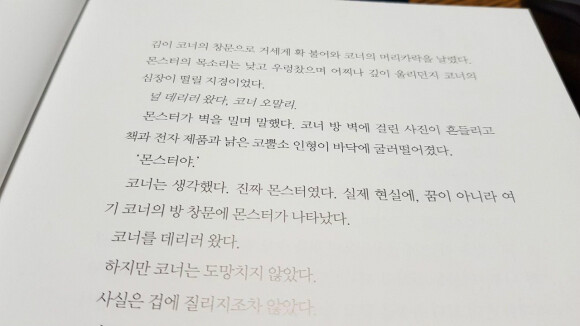 김이 코너의 창문으로 거세게 확 불어와 코너의 머리카락을 날렸다.
몬스터의 목소리는 낮고 우렁찼으며 어찌나 깊이 울리던지 코너의
심장이 떨릴 지경이었다.
널 데리러 왔다, 코너 오말리.
몬스터가 벽을 밀며 말했다. 코너 방 벽에 걸린 사진이 흔들리고
책과 전자 제품과 낡은 코뿔소 인형이 바닥에 굴러떨어졌다.
‘몬스터야.’
코너는 생각했다. 진짜 몬스터였다. 실제 현실에, 꿈이 아니라 여
기 코너의 방 창문에 몬스터가 나타났다.
코너를 데리러 왔다.
하지만 코너는 도망치지 않았다.
사실은 겁에 질리지조차 않았다.